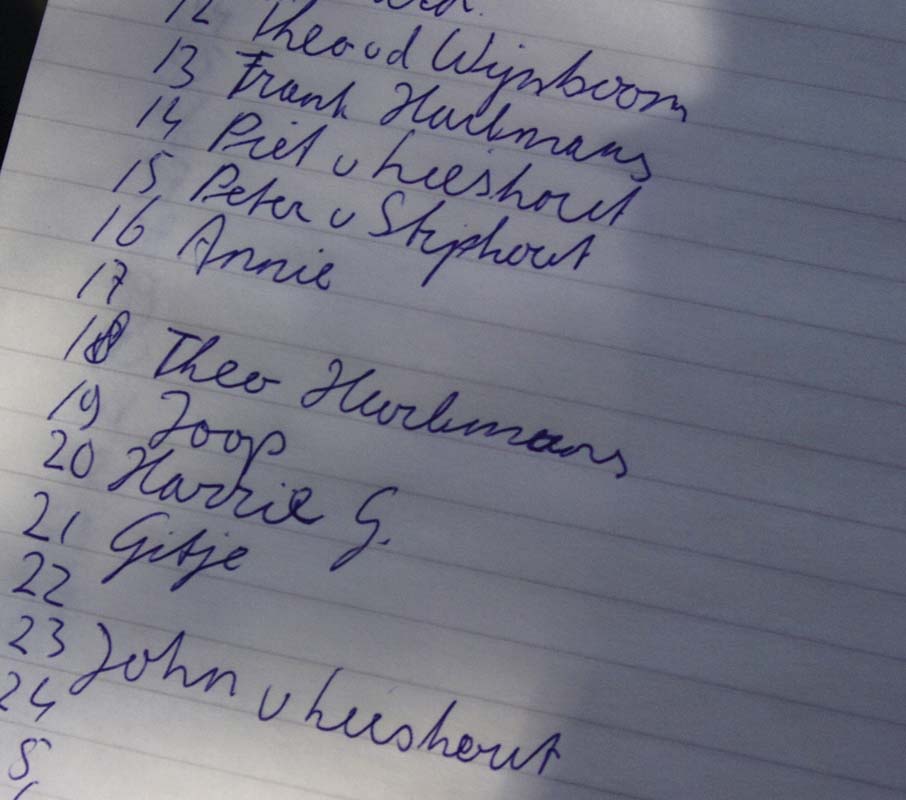 12 Theo vd Wijnboom
13 Frank Hurkmans
14 Piet v Lieshout
15 Peter v Stiphout
16 Annie
17
18 Theo Hurkmans
19 Joop
20 Harrie G.
21 Gitje
22
23 John v Lieshout
24
5